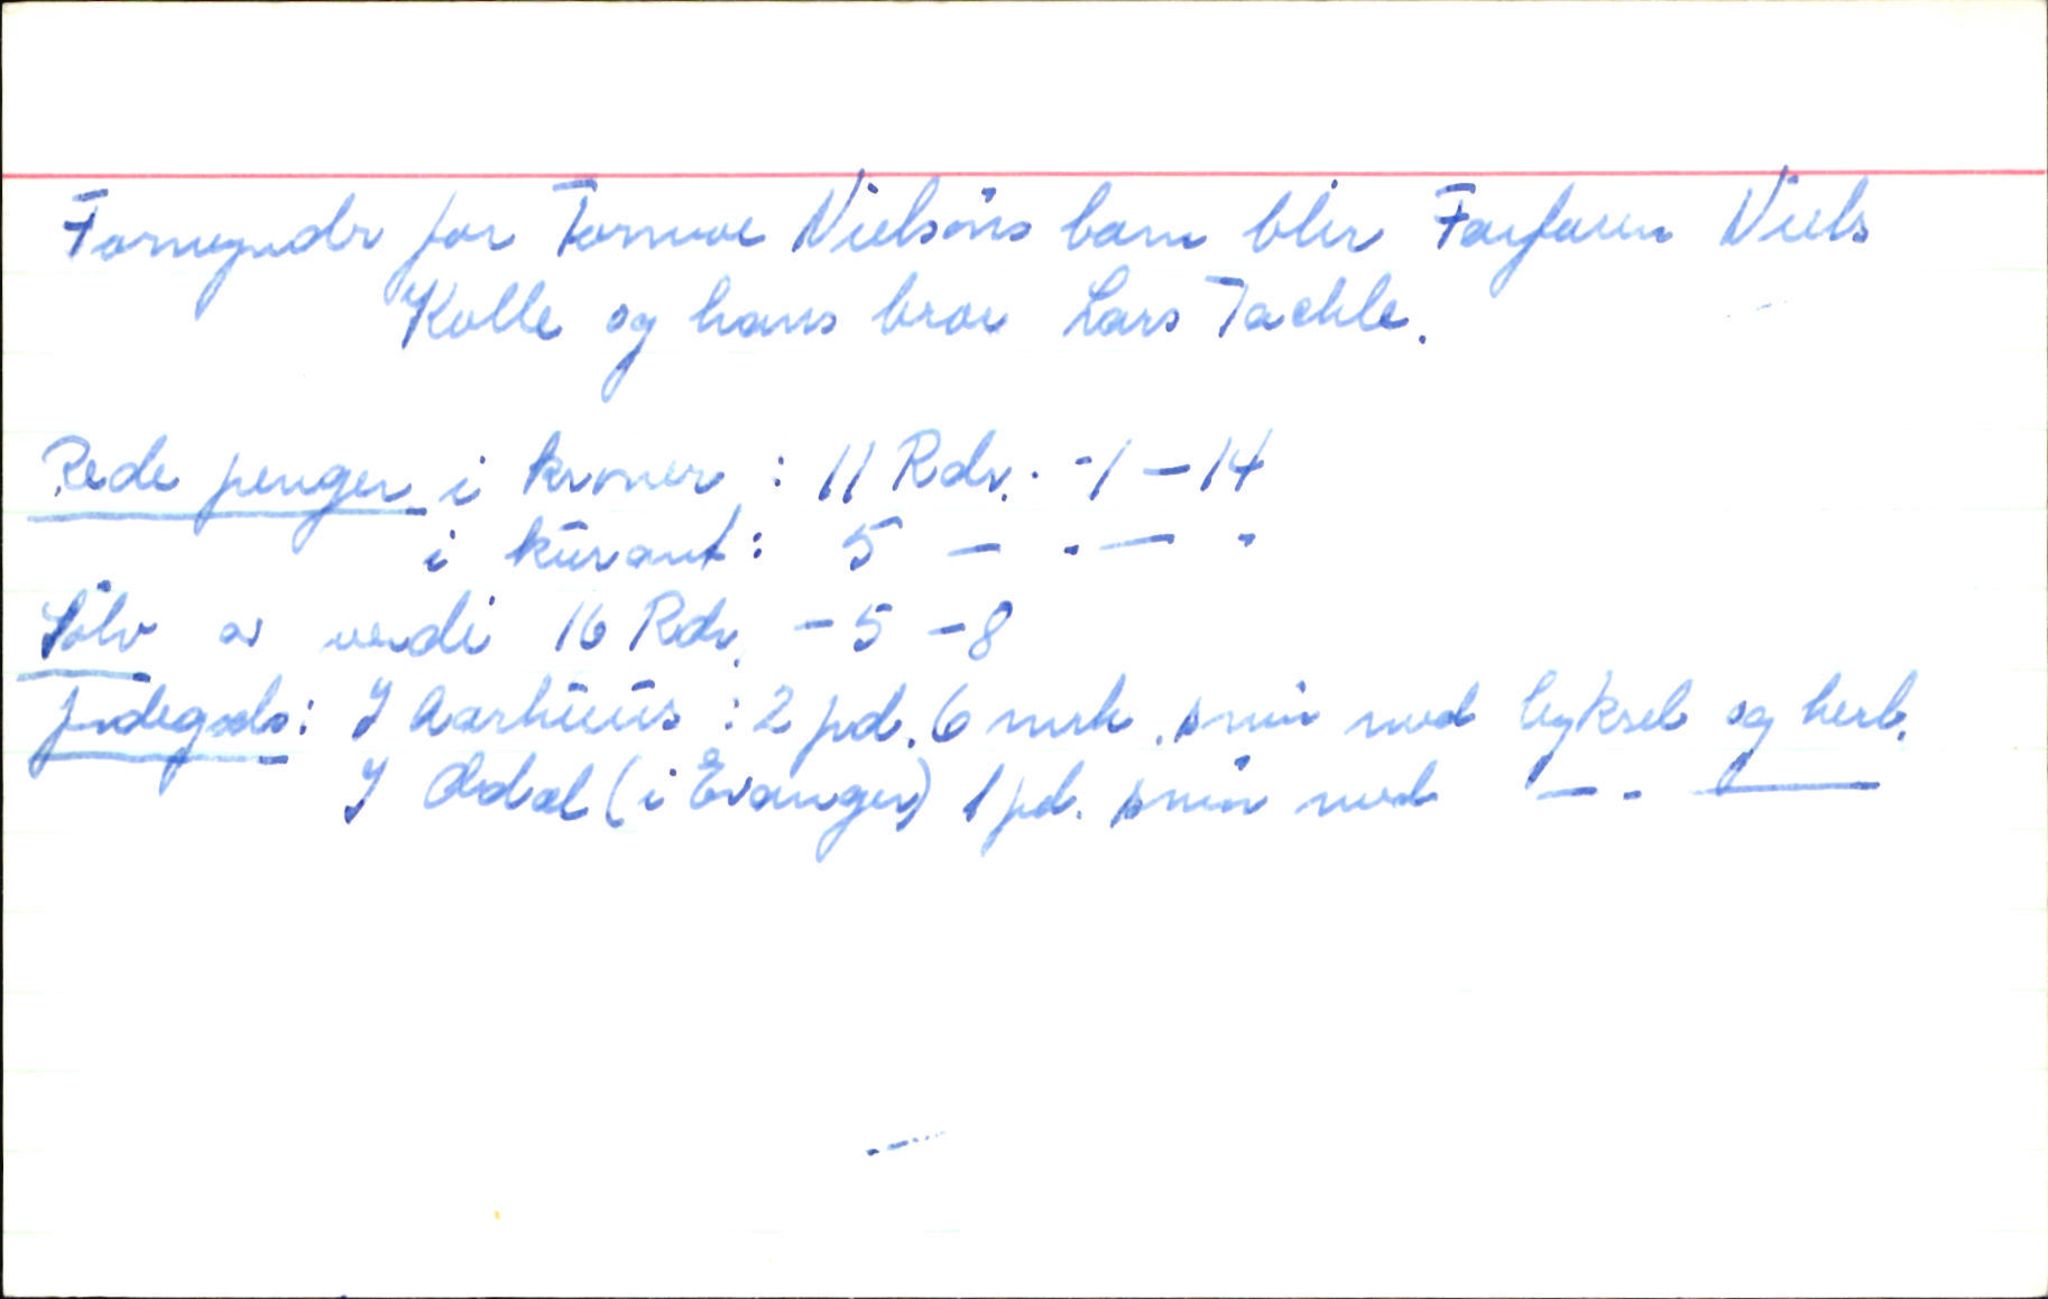 Formynder for Tormoe Nielsøns barn blir Farfaren Niels
Kolle og hans bror Lars Tackle.
Rede penger i kroner : 11 Rdr. - 1 - 14
i kurant : 5 - . - .
Sølv av verdi 16 Rdr. - 5 - 8
Jordegods : I Aarhuus : 2 pd. 6 mrk. smør med byksel og herl.
I Ædal (i Evanger) 1 pd. smør med — . —